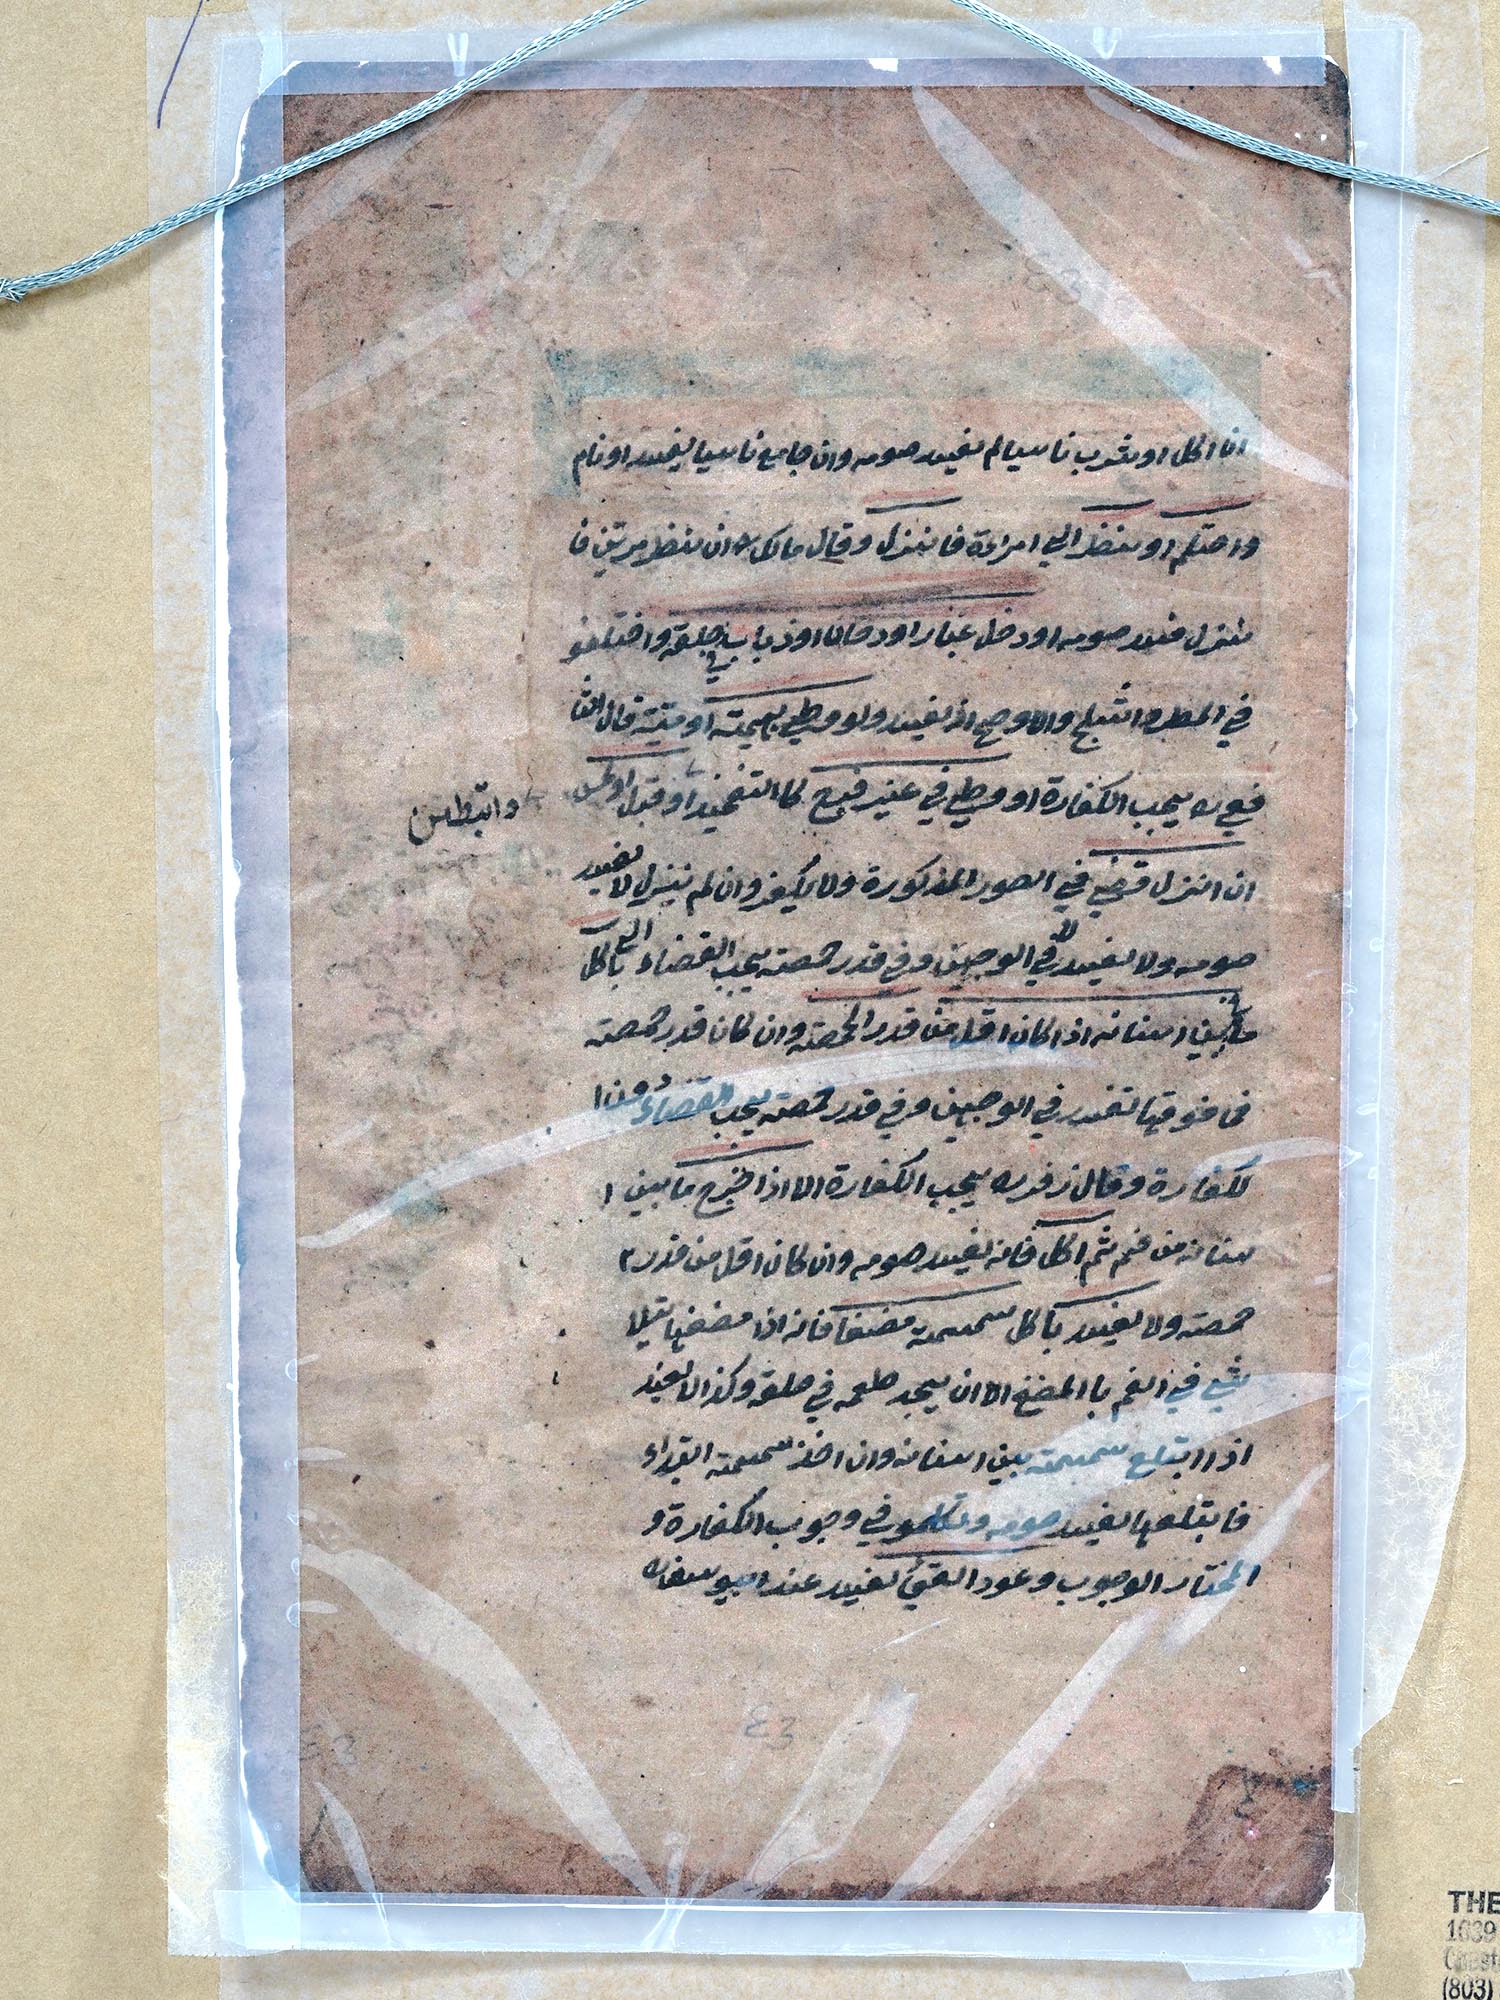 ان اكل او شرب ناسيا لم يفسد صومه وان جامع ناسيا يفسد او نام
واحتلم او ينظر الي امراءة فا ينزل وقال مالك ان ينظر مرتين فا
ينزل فسد صومه او دخل غبار او دخان او ذباب في حلقه واختلفو
في المطر والثلج والاوصح انه يفسد ولو وطي بهيمته او ميتة قال الشا
فعي ره يجب الكفارة او وطي في غير فبع كا التفخيذ او قبل او لمس
والتبطين
ان انزل قضي في الصور المذكورة ولا يكفر وان لم ينزل لا يفسد
صومه ولا يفسد في الوجهين وفي قدر حمصته يجب القضاء باكل
ما بين اسنانه اذا كان اقل من قدر الحمصته وان كان قدر حمصته
فما فوقها تفسد في الوجهين وفي قدر حمصته يجب القضاء دون ا
لكفارة وقال زفر ره يجب الكفارة الا اذا خرج ما بين ا
سنانه من فم ثم اكل فانه يفسد صومه وان كان اقل من قدر
حمصته ولا يفسد باكل سمسمة مضغا فانه اذا مضغها
شي في الفم با المضغ الا ان يجد طعمه في حلقه وكذا لا يفسد
اذا ابتلع سمسمته بين اسنانه وان اخذ سمسمته ابتداء
فابتلعها يفسد صومه وتكلمو في وجوب الكفارة و
المختار الوجوب وعود القئ يفسد عند ابيو سف ره
٤٣
THE
1639
(803)